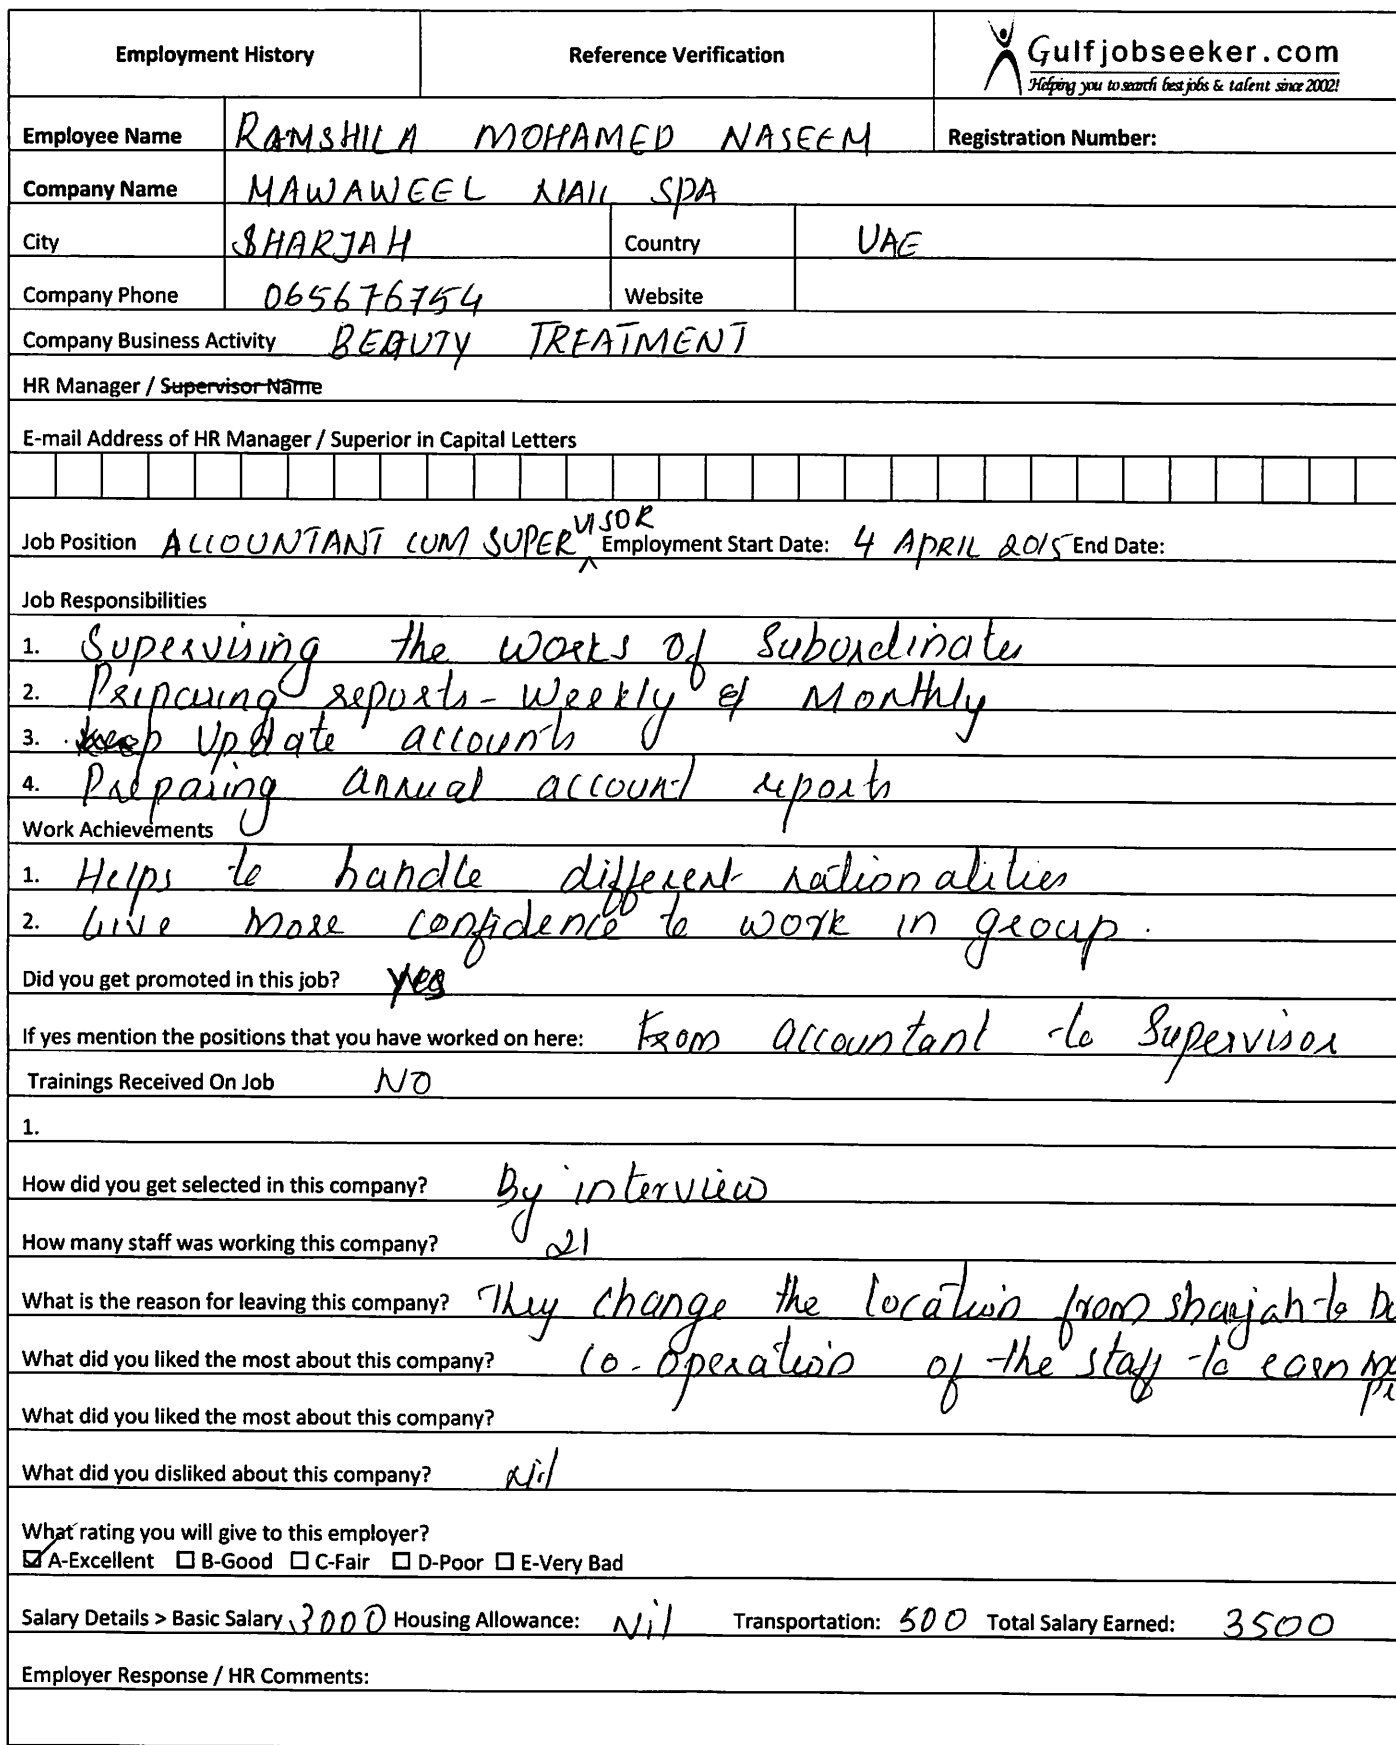 Employment History Reference Verification Gulfjobseeker.com
Helping you to search best jobs & talent since 2002!
Employee Name RAMSHILA MOHAMED NASEEM Registration Number:
Company Name MAWAWEEL NAIL SPA
City SHARJAH Country UAE
Company Phone 065676754 Website
Company Business Activity BEAUTY TREATMENT
HR Manager / Supervisor Name
E-mail Address of HR Manager / Superior in Capital Letters
Job Position ACCOUNTANT CUM SUPERVISOR Employment Start Date: 4 APRIL 2015 End Date:
Job Responsibilities
1. Supervising the works of Subordinates
2. Preparing reports - weekly & Monthly
3. Update accounts
4. Preparing annual account reports
Work Achievements
1. Helps to handle different nationalities
2. Give more confidence to work in group.
Did you get promoted in this job? yes
If yes mention the positions that you have worked on here: From accountant to Supervisor
Trainings Received On Job NO
1.
How did you get selected in this company? By interview
How many staff was working this company? 21
What is the reason for leaving this company? They change the location from sharjah to
What did you liked the most about this company? Co-operation of the staff to earn
What did you liked the most about this company?
What did you disliked about this company? Nil
What rating you will give to this employer?
☑ A-Excellent ☐ B-Good ☐ C-Fair ☐ D-Poor ☐ E-Very Bad
Salary Details > Basic Salary 3000 Housing Allowance: Nil Transportation: 500 Total Salary Earned: 3500
Employer Response / HR Comments: